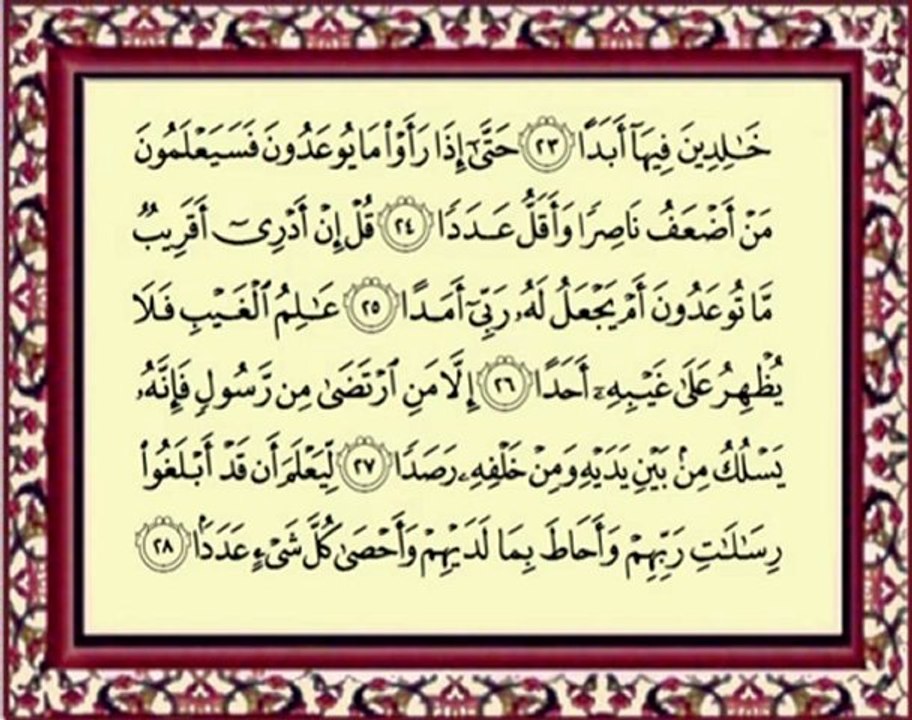 خَـٰلِدِينَ فِيهَآ أَبَدًا ٢٣ حَتَّىٰٓ إِذَا رَأَوْا۟ مَا يُوعَدُونَ فَسَيَعْلَمُونَ
مَنْ أَضْعَفُ نَاصِرًا وَأَقَلُّ عَدَدًا ٢٤ قُلْ إِنْ أَدْرِىٓ أَقَرِيبٌ
مَّا تُوعَدُونَ أَمْ يَجْعَلُ لَهُۥ رَبِّىٓ أَمَدًا ٢٥ عَـٰلِمُ ٱلْغَيْبِ فَلَا
يُظْهِرُ عَلَىٰ غَيْبِهِۦٓ أَحَدًا ٢٦ إِلَّا مَنِ ٱرْتَضَىٰ مِن رَّسُولٍ فَإِنَّهُۥ
يَسْلُكُ مِنۢ بَيْنِ يَدَيْهِ وَمِنْ خَلْفِهِۦ رَصَدًا ٢٧ لِّيَعْلَمَ أَن قَدْ أَبْلَغُوا۟
رِسَـٰلَـٰتِ رَبِّهِمْ وَأَحَاطَ بِمَا لَدَيْهِمْ وَأَحْصَىٰ كُلَّ شَىْءٍ عَدَدًۢا ٢٨